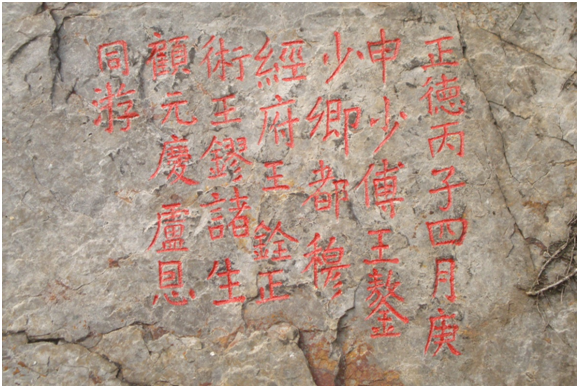 正德丙子四月庚
申少傅王鏊
少卿都穆
經府王銓正
術王鏐諸生
顧元慶盧恩
同游